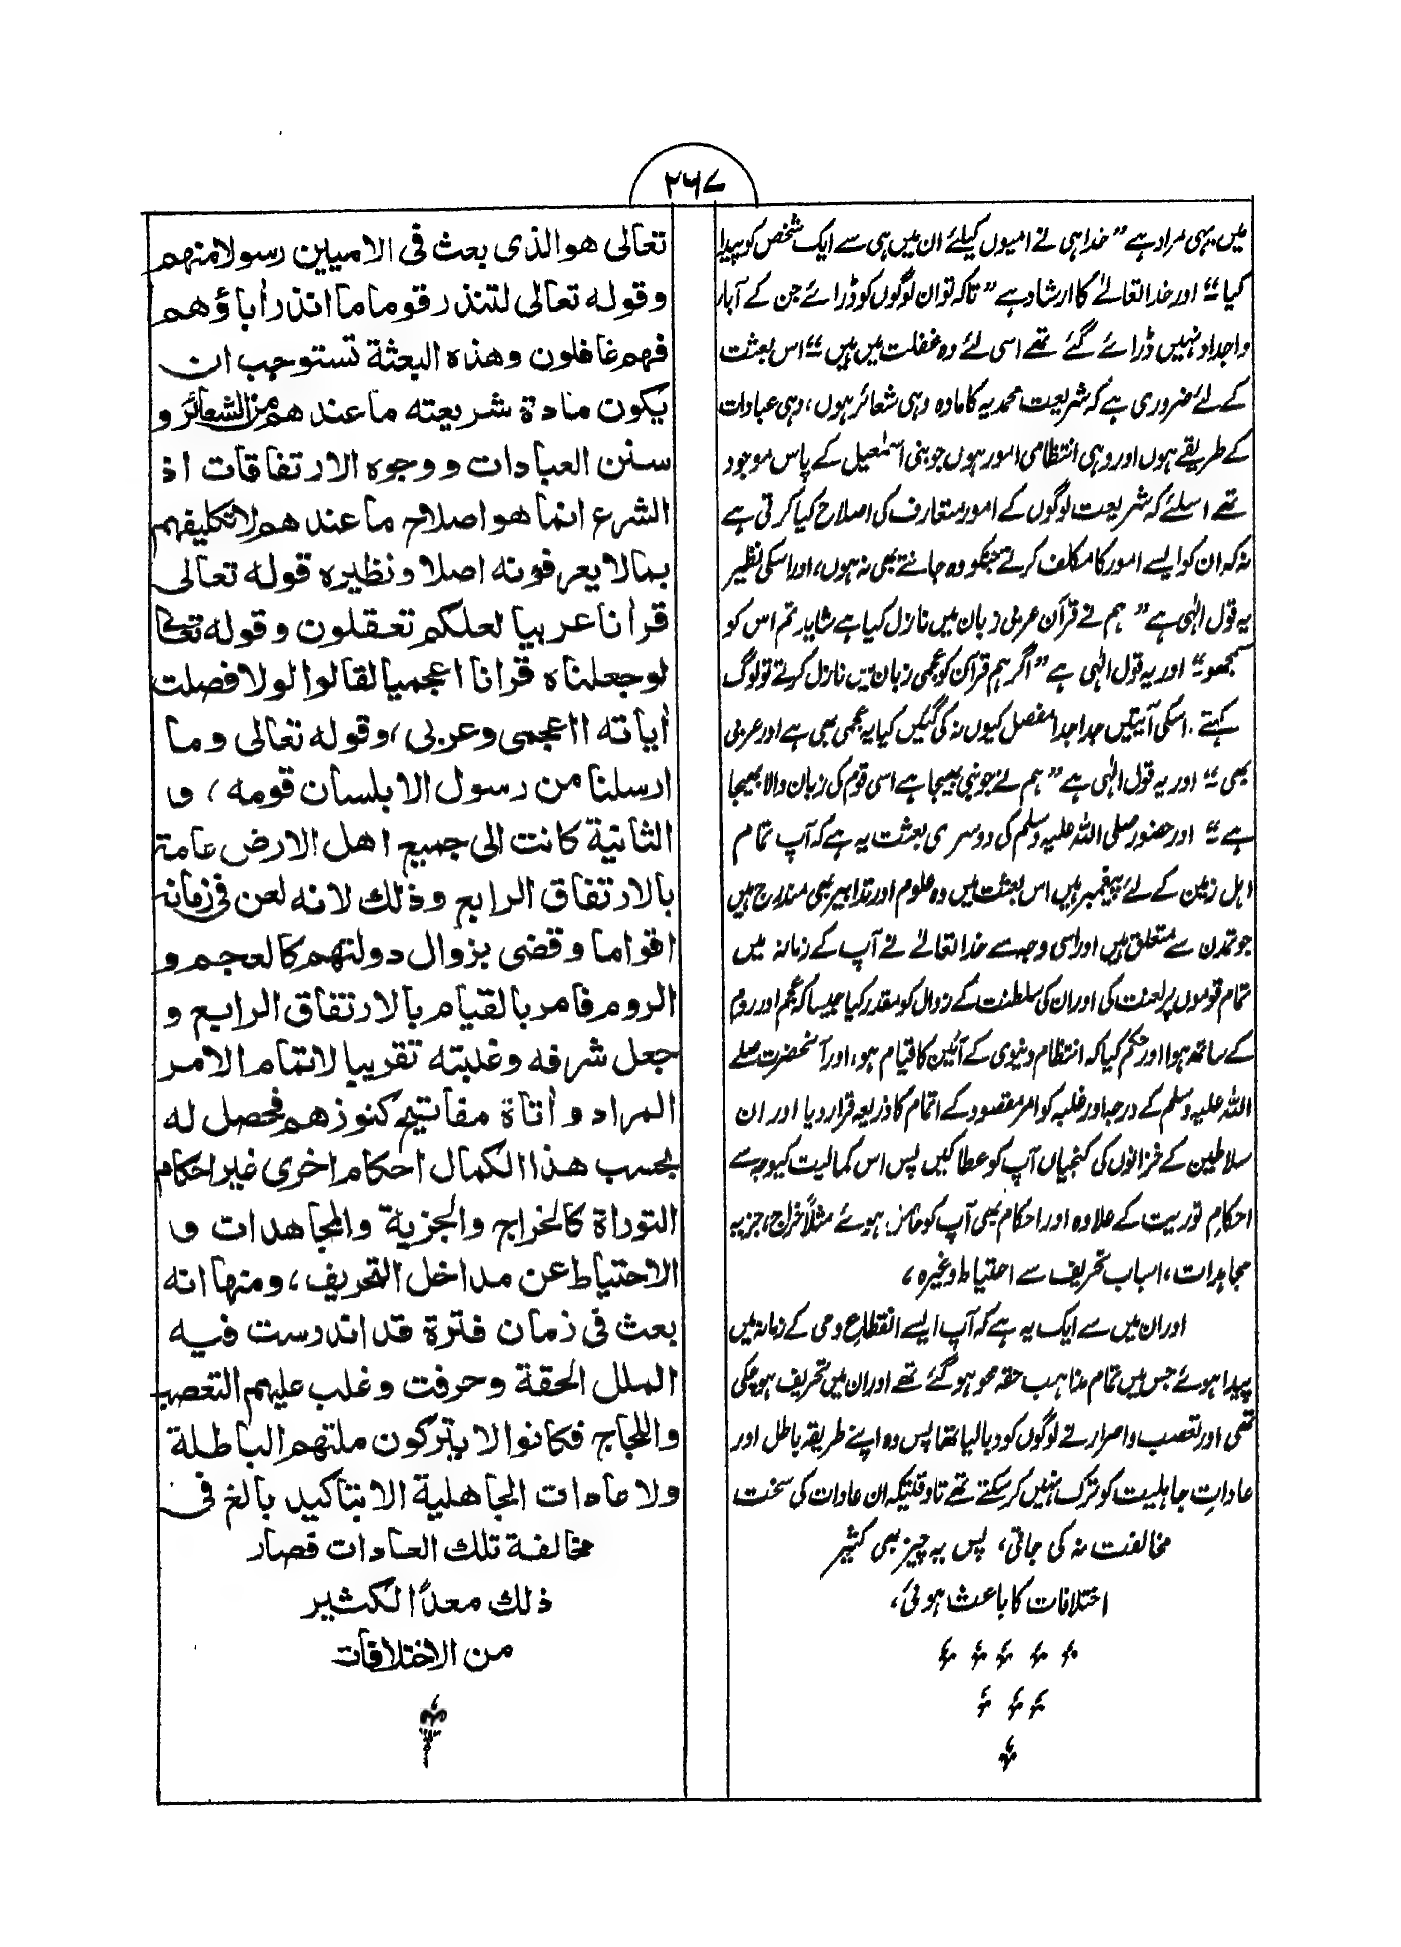 ۲۶۷
میں یہی مراد ہے ”خدا ہی نے امیوں کیلئے ان میں ہی سے ایک شخص کو پیدا
کیا“ اور خدا تعالےٰ کا ارشاد ہے ”تاکہ تو ان لوگوں کو ڈرائے جن کے آباء
واجداد نہیں ڈرائے گئے تھے اسی لئے وہ غفلت میں ہیں“ اس بعثت
کے لئے ضروری ہے کہ شریعت محمدیہ کا مادہ وہی شعائر ہوں، وہی عبادات
کے طریقے ہوں اور وہی انتظامی امور ہوں جو بنی اسمٰعیل کے پاس موجود
تھے اسلئے کہ شریعت لوگوں کے امور متعارف کی اصلاح کیا کرتی ہے
نہ کہ ان کو ایسے امور کا مکلف کرتے جنکو وہ جانتے بھی نہ ہوں، اور اسکی نظیر
یہ قول الٰہی ہے ”ہم نے قرآن عربی زبان میں نازل کیا ہے شاید تم اس کو
سمجھو“ اور یہ قول الٰہی ہے ”اگر ہم قرآن کو عجمی زبان میں نازل کرتے تو لوگ
کہتے۔ اسکی آیتیں جدا جدا مفصل کیوں نہ کی گئیں کیا یہ عجمی بھی ہے اور عربی
بھی“ اور یہ قول الٰہی ہے ”ہم نے جو نبی بھیجا ہے اسی قوم کی زبان والا بھیجا
ہے“ اور حضور صلی اللہ علیہ وسلم کی دوسری بعثت یہ ہے کہ آپ تمام
اہل زمین کے لئے پیغمبر ہیں اس بعثت میں وہ علوم اور تدابیر بھی مندرج ہیں
جو تمدن سے متعلق ہیں اور اسی وجہ سے خدا تعالےٰ نے آپ کے زمانہ میں
تمام قوموں پر لعنت کی اور ان کی سلطنت کے زوال کو مقدر کیا جیسا کہ عجم اور روم
کے ساتھ ہوا اور حکم کیا کہ انتظام دنیوی کے آئین کا قیام ہو، اور آنحضرت صلے
اللہ علیہ وسلم کے درجہ اور غلبہ کو امر مقصود کے اتمام کا ذریعہ قرار دیا اور ان
سلاطین کے خزانوں کی کنجیاں آپ کو عطا کیں پس اس کمالیت کیوجہ سے
احکام توریت کے علاوہ اور احکام بھی آپ کو حاصل ہوئے مثلاً خراج، جزیہ
مجاہدات، اسباب تحریف سے احتیاط وغیرہ،
اور ان میں سے ایک یہ ہے کہ آپ ایسے انقطاع وحی کے زمانہ میں
پیدا ہوئے جس میں تمام مذاہب حقہ محو ہوگئے تھے اور ان میں تحریف ہوچکی
تھی اور تعصب و اصرار نے لوگوں کو دبا لیا تھا پس وہ اپنے طریقہ باطل اور
عاداتِ جاہلیت کو ترک نہیں کرسکتے تھے تاوقتیکہ ان عادات کی سخت
مخالفت نہ کی جاتی، پس یہ چیز بھی کثیر
اختلافات کا باعث ہوئی،
تعالى هو الذى بعث فى الاميين رسولا منهم
وقوله تعالى لتنذر قوما ما انذر أباؤهم
فهم غافلون وهذه البعثة تستوجب ان
يكون مادة شريعته ما عندهم من الشعائر و
سنن العبادات ووجوه الارتفاقات اذ
الشرع انما هو اصلاح ما عندهم لا تكليفهم
بما لا يعرفونه اصلا ونظيره قوله تعالى
قرأنا عربيا لعلكم تعقلون وقوله تعالى
لو جعلناه قرانا اعجميا لقالوا لولا فصلت
أياته ااعجمى وعربى، وقوله تعالى وما
ارسلنا من رسول الا بلسان قومه، و
الثانية كانت الى جميع اهل الارض عامة
بالارتفاق الرابع وذلك لانه لعن فى زمانه
اقواما وقضى بزوال دولتهم كالعجم و
الروم فامر بالقيام بالارتفاق الرابع و
جعل شرفه وغلبته تقريبا لاتمام الامر
المراد وأتاة مفاتيح كنوزهم فحصل له
بحسب هذا الكمال احكام اخرى غير احكام
التوراة كالخراج والجزية والمجاهدات و
الاحتياط عن مداخل التحريف، ومنها انه
بعث فى زمان فترة قد اندرست فيه
الملل الحقة وحرفت وغلب عليهم التعصب
واللجاج فكانوا لا يتركون ملتهم الباطلة
ولا عادات الجاهلية الا بتاكيد بالغ فى
مخالفة تلك العادات فصار
ذلك معدًّا لكثير
من الاختلافات